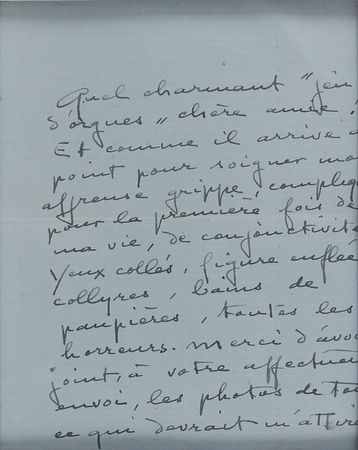 Quel charmant "jeu
d'orgues" chère amie,
Et comme il arrive à
point pour soigner ma
affreuse grippe, compliq
pour la première fois de
ma vie, de conjonctivite
Yeux collés, figure enflée
collyres, bains de
paupières, toutes les
horreurs. Merci d'avo
joint, à votre affectue
envoi, les photos de tou
ce qui devrait m'attire